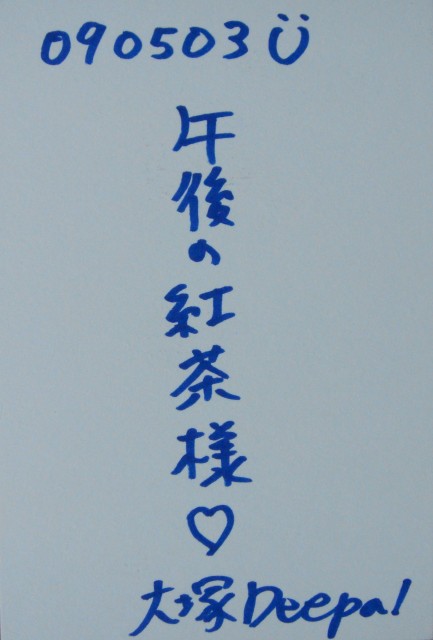 090503 Ü
午後の紅茶様♡
大塚Deepa!